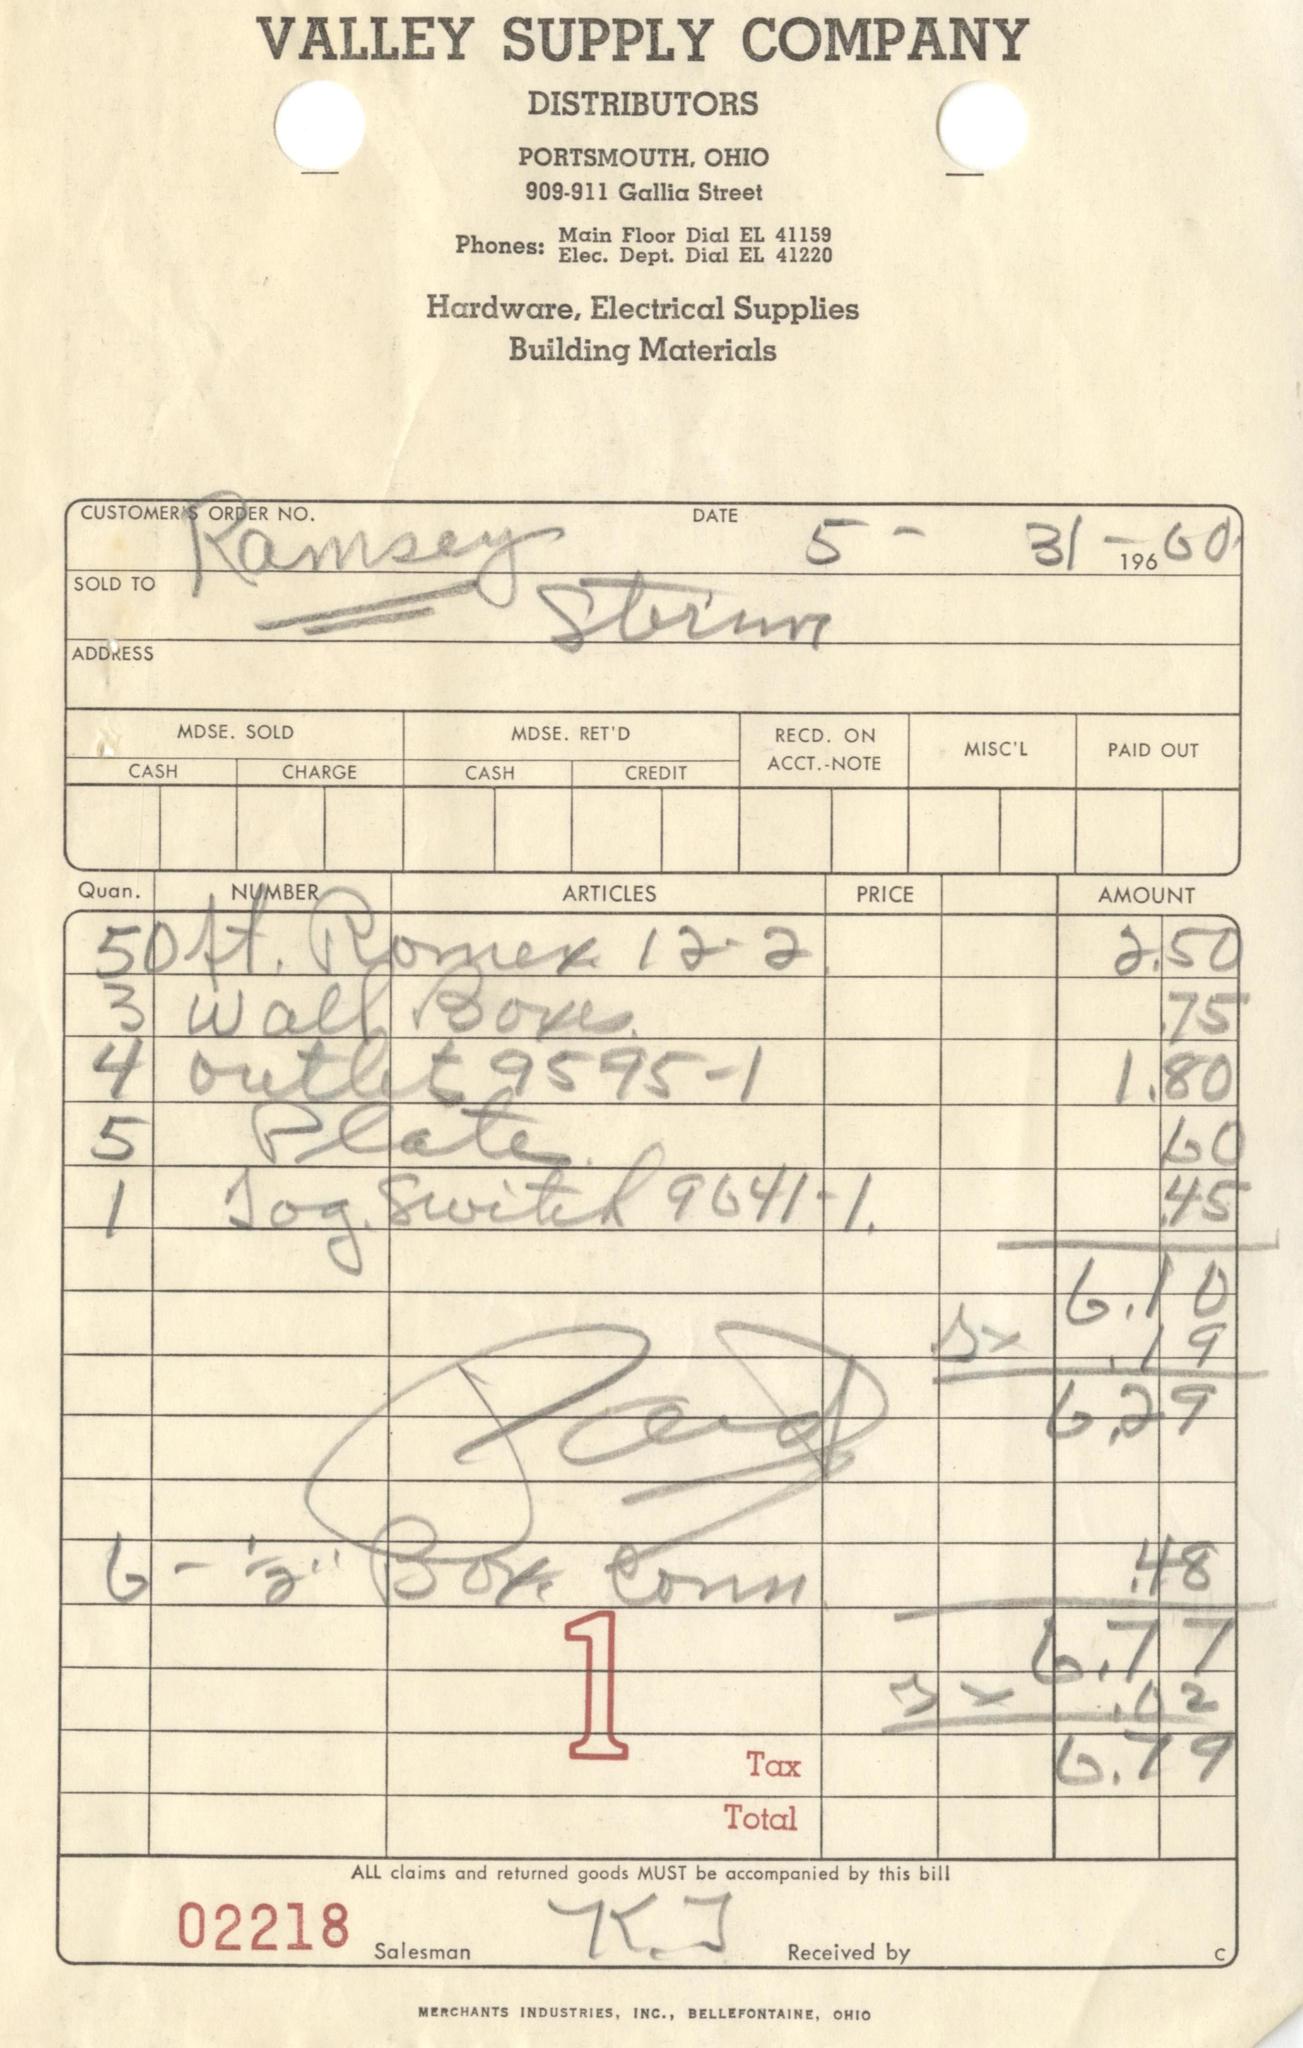 VALLEY SUPPLY COMPANY
DISTRIBUTORS
PORTSMOUTH, OHIO
909-911 Gallia Street
Phones: Main Floor Dial EL 41159
Elec. Dept. Dial EL 41220
Hardware, Electrical Supplies
Building Materials
CUSTOMER'S ORDER NO. Ramsey DATE 5 - 31 - 196 60
SOLD TO
ADDRESS
MDSE. SOLD MDSE. RET'D RECD. ON ACCT.-NOTE MISC'L PAID OUT
CASH CHARGE CASH CREDIT
Quan. NUMBER ARTICLES PRICE AMOUNT
50 ft. Romex 12-2 2.50
3 Wall Boxes .75
4 outlets 9595-1 1.80
5 Plates 60
1 Tog. Switch 9641-1. .45
6.10
Tx .19
6.29
Paid
6 - 1/2" Box Conn. .48
6.77
1 Tx .02
Tax 6.79
Total
ALL claims and returned goods MUST be accompanied by this bill
02218 Salesman K.J Received by C
MERCHANTS INDUSTRIES, INC., BELLEFONTAINE, OHIO